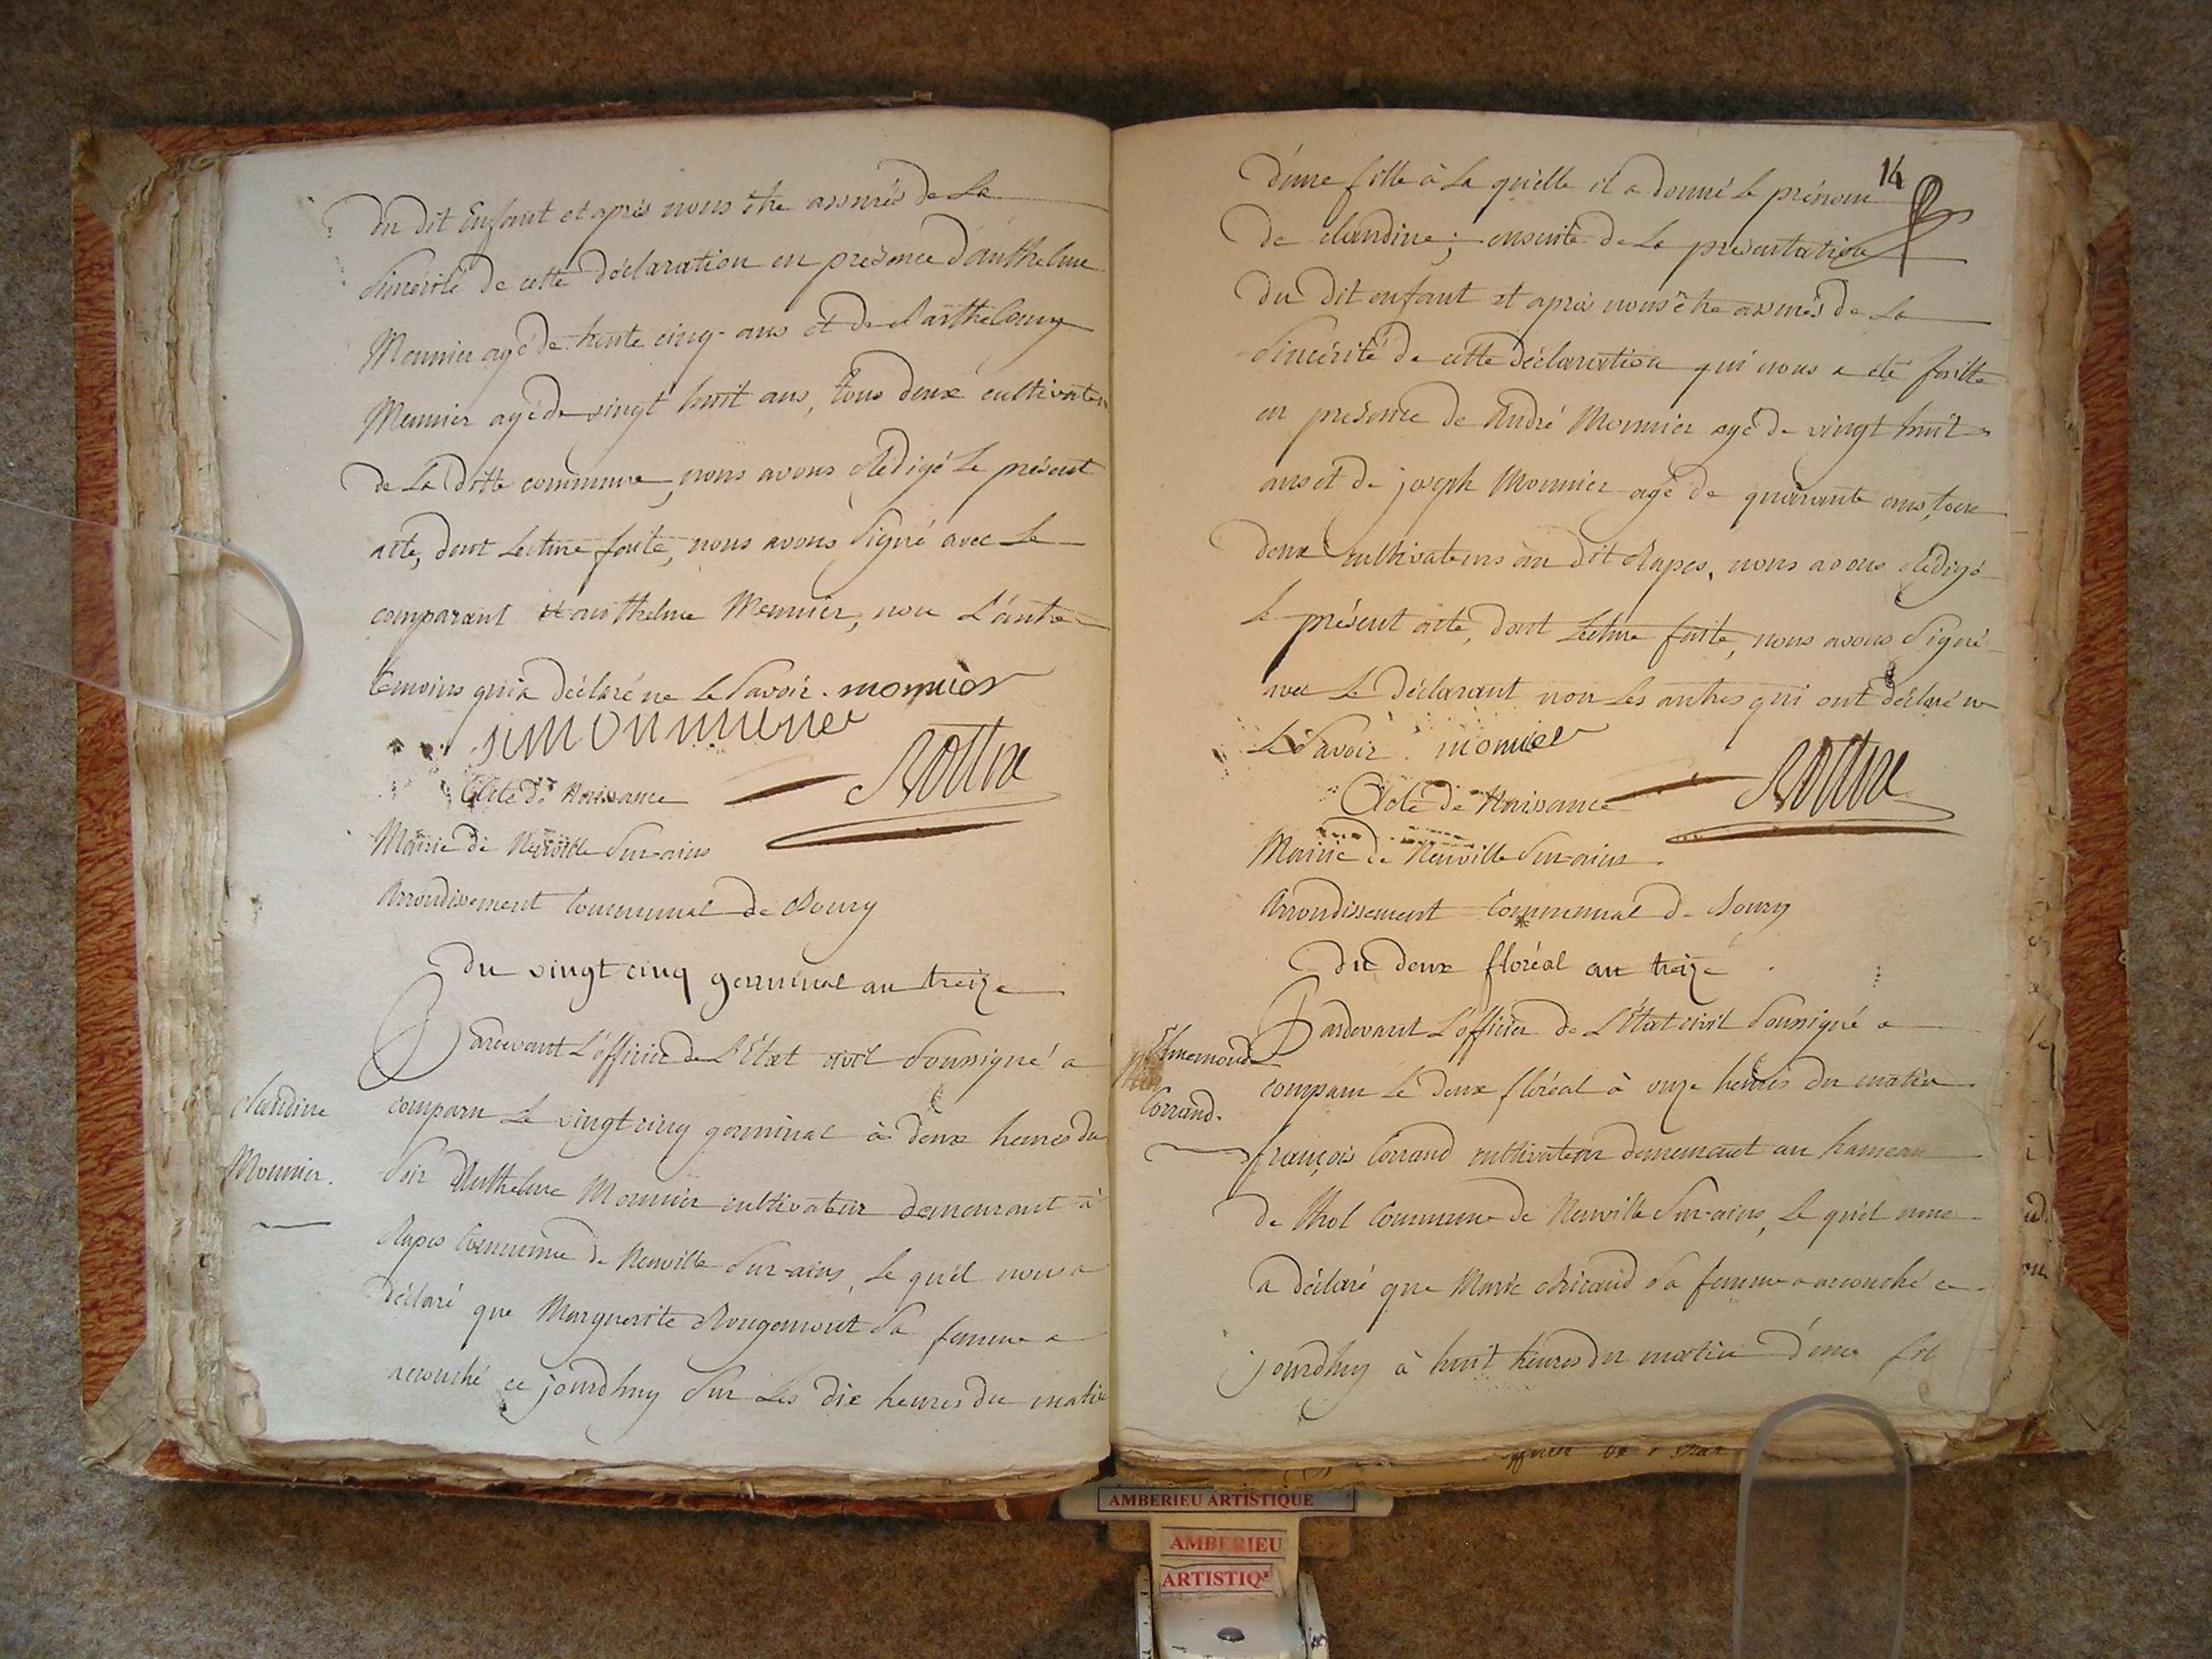 du dit Enfant et après nous être assurés de La
Sincérité de cette déclaration en présence d'anthelme
Monnier agé de trente cinq ans et de Barthelemy
Monnier agé de vingt huit ans, tous deux cultivateurs
de La ditte commune, nous avons Rédigé Le présent
acte, dont Lecture faite, nous avons Signé avec Le
comparant et anthelme Monnier, non L'autre
temoins qui a déclaré ne Le Savoir. monnier
Acte de Naissance
Mairie de Neuville Sur-ains
Arrondissement Communal de Bourg
du vingt cinq germinal an treize
Pardevant L'officier de L'Etat civil Soussigné a
claudine
Monnier.
comparu Le vingt cinq germinal à deux heures du
Soir Anthelme Monnier cultivateur demeurant à
Rapes Commune de Neuville Sur-ains, Le quel nous a
déclaré que Marguerite Rougemont Sa femme a
accouché ce jourdhuy Sur Les dix heures du matin
14
d'une fille à La quelle il a donné Le prénom
de claudine; ensuite de La présentation
du dit enfant et après nous être assurés de La
Sincérité de cette déclaration qui nous a été faitte
en présence de André Monnier agé de vingt huit
ans et de joseph Monnier agé de quarante ans, tous
deux cultivateurs au dit Rapes, nous avons Rédigé
Le présent acte, dont Lecture faite, nous avons Signé
avec Le déclarant non Les autres qui ont déclaré ne
Le Savoir. monnier
Acte de Naissance
Mairie de Neuville Sur-ains
Arrondissement Communal de Bourg
du deux floréal an treize
Pardevant L'officier de L'Etat civil Soussigné a
Corrand.
comparu Le deux floréal à onze heures du matin
françois Corrand cultivateur demeurant au hameau
de Thol Commune de Neuville Sur-ains, Le quel nous
a déclaré que Marie Sa femme a accouché ce
jourdhuy à huit heures du matin d'une
AMBERIEU ARTISTIQUE
AMBERIEU
ARTISTIQ